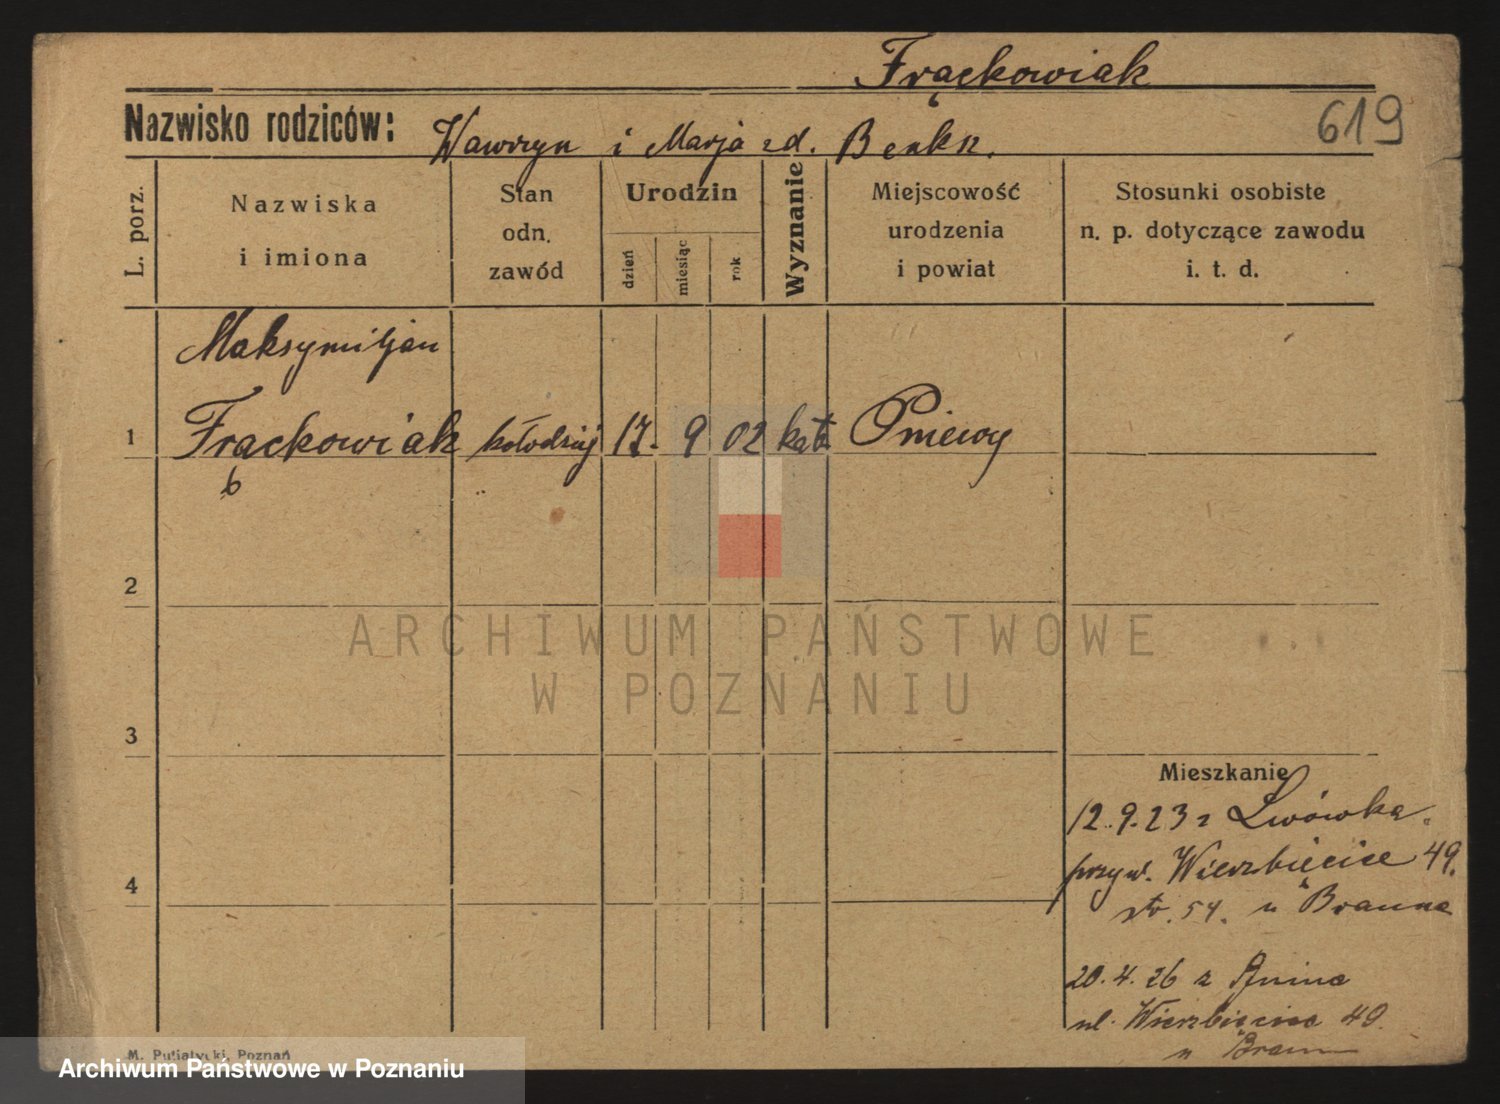 Frąckowiak
Nazwisko rodziców: Wawrzyn i Marja zd. Benkn.
619
L. porz.
Nazwiska
i imiona
Stan
odn.
zawód
Urodzin
dzień
miesiąc
rok
Wyznanie
Miejscowość
urodzenia
i powiat
Stosunki osobiste
n. p. dotyczące zawodu
i. t. d.
Maksymiljan
1 Frąckowiak kołodziej 17. 9 02 kat. Pniewy
2
ARCHIWUM PAŃSTWOWE
W POZNANIU
3
Mieszkanie
12.9.23 z Lwówka.
4
przy ul. Wierzbięcice 49.
str. 54. u Brauna
20.4.26 z
ul. Wierzbięcice 49.
u Braun
M. Putiatycki, Poznań
Archiwum Państwowe w Poznaniu